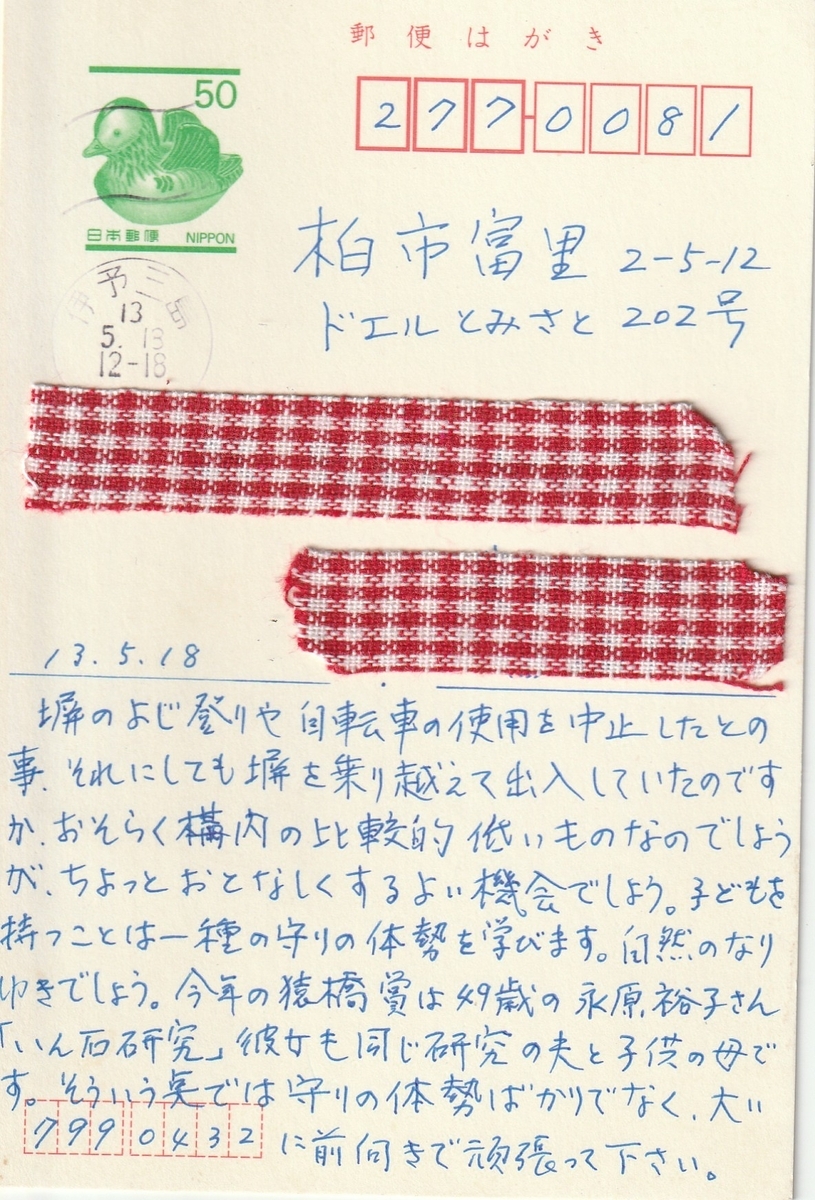 郵便はがき
50
日本郵便 NIPPON
277-0081
柏市富里 2-5-12
ドエルとみさと 202号
伊予三島
13
5. 13
12-18
13.5.18
塀のよじ登りや自転車の使用を中止したとの
事、それにしても塀を乗り越えて出入していたのです
か、おそらく構内の比較的低いものなのでしょう
が、ちょっとおとなしくするよい機会でしょう。子どもを
持つことは一種の守りの体勢を学びます。自然のなり
ゆきでしょう。今年の猿橋賞は49歳の永原裕子さん
「いん石研究」彼女も同じ研究の夫と子供の母で
す。そういう点では守りの体勢ばかりでなく、大い
に前向きで頑張って下さい。
7990432